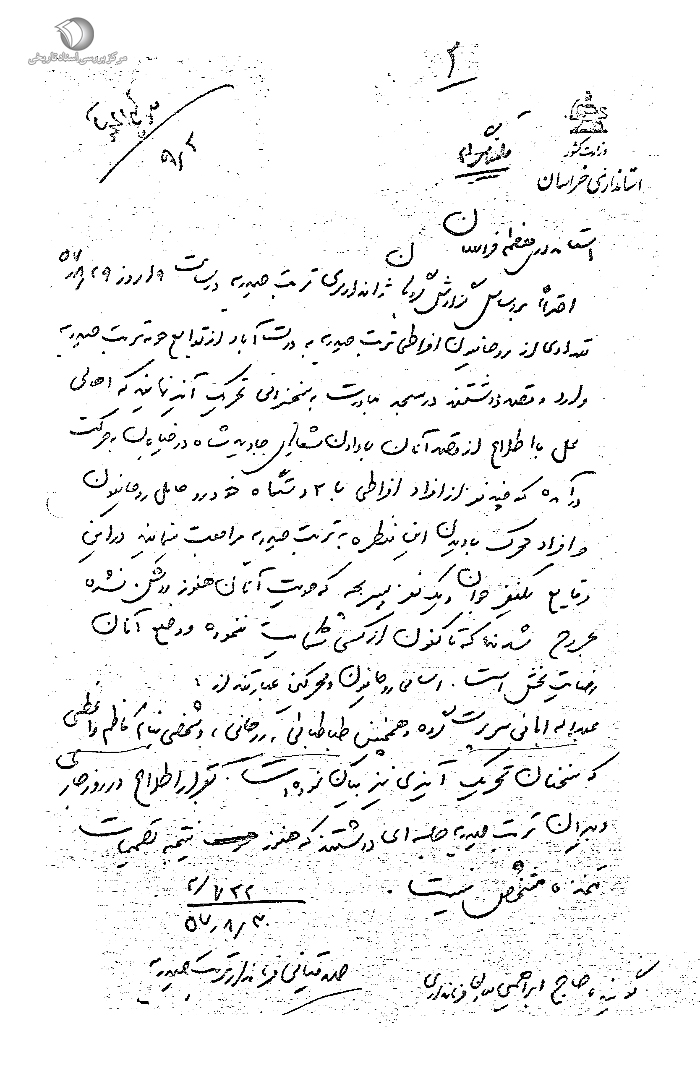 مرکز بررسی اسناد تاریخی
۲
۹٫۲
وزارت کشور
استانداری خراسان
تلفنگرام
استانداری معظم خراسان
احتراماً براساس گزارش گروهان ژاندارمری تربت حیدریه در ساعت ۱۹ روز ۵۷/۸/۲۹
تعدادی از روحانیون افراطی تربت حیدریه به دولت آباد از توابع حومه تربت حیدریه
وارد و قصد داشتند در مسجد مبادرت به سخنرانی تحریک آمیز نمایند که اهالی
محل با اطلاع از قصد آنان با دادن شعارهای جاوید شاه در خیابان به حرکت
درآمده که چند نفر از افراد افراطی با ۲ دستگاه خودرو حامل روحانیون
و افراد محرک با دیدن این منظره به تربت حیدریه مراجعت مینمایند در این
وقایع یکنفر جوان و یک نفر پسربچه که هویت آنان هنوز روشن نشده
مجروح شدند که تاکنون از کسی شکایت ننموده و وضع آنان
رضایت بخش است. اسامی روحانیون و محرکین عبارتند از:
عبداله امانی سرپرست گروه و همچنین طباطبائی، روحانی، و شخصی بنام کاظم واعظی
که سخنان تحریک آمیزی نیز بیان نموده است. بقرار اطلاع در روز جاری
دبیران تربت حیدریه جلسه ای داشتند که هنوز نتیجه تصمیمات
متخذه مشخص نیست.
۲/۷۲۲
۵۷/۸/۳۰
فرماندار تربت حیدریه
گوینده حاج ابراهیمی فرمانداری